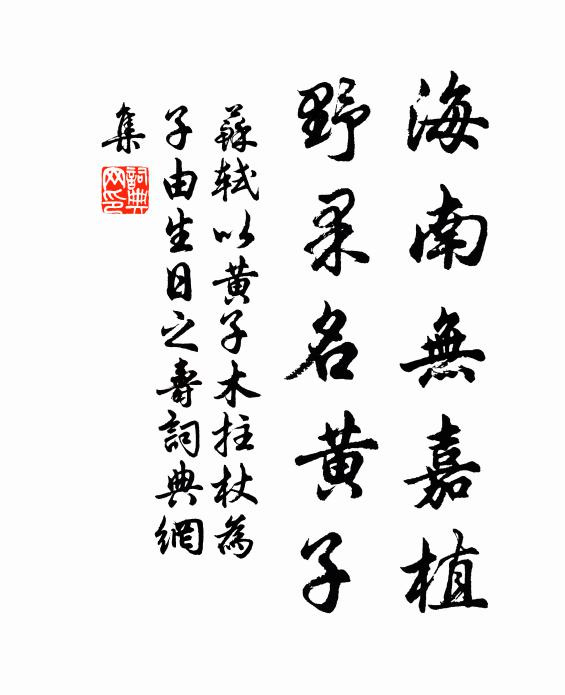 海南無嘉植
野果名黄子
蘇軾以黄子木拄杖為
子由生日之壽詞典網
集
詞典网印